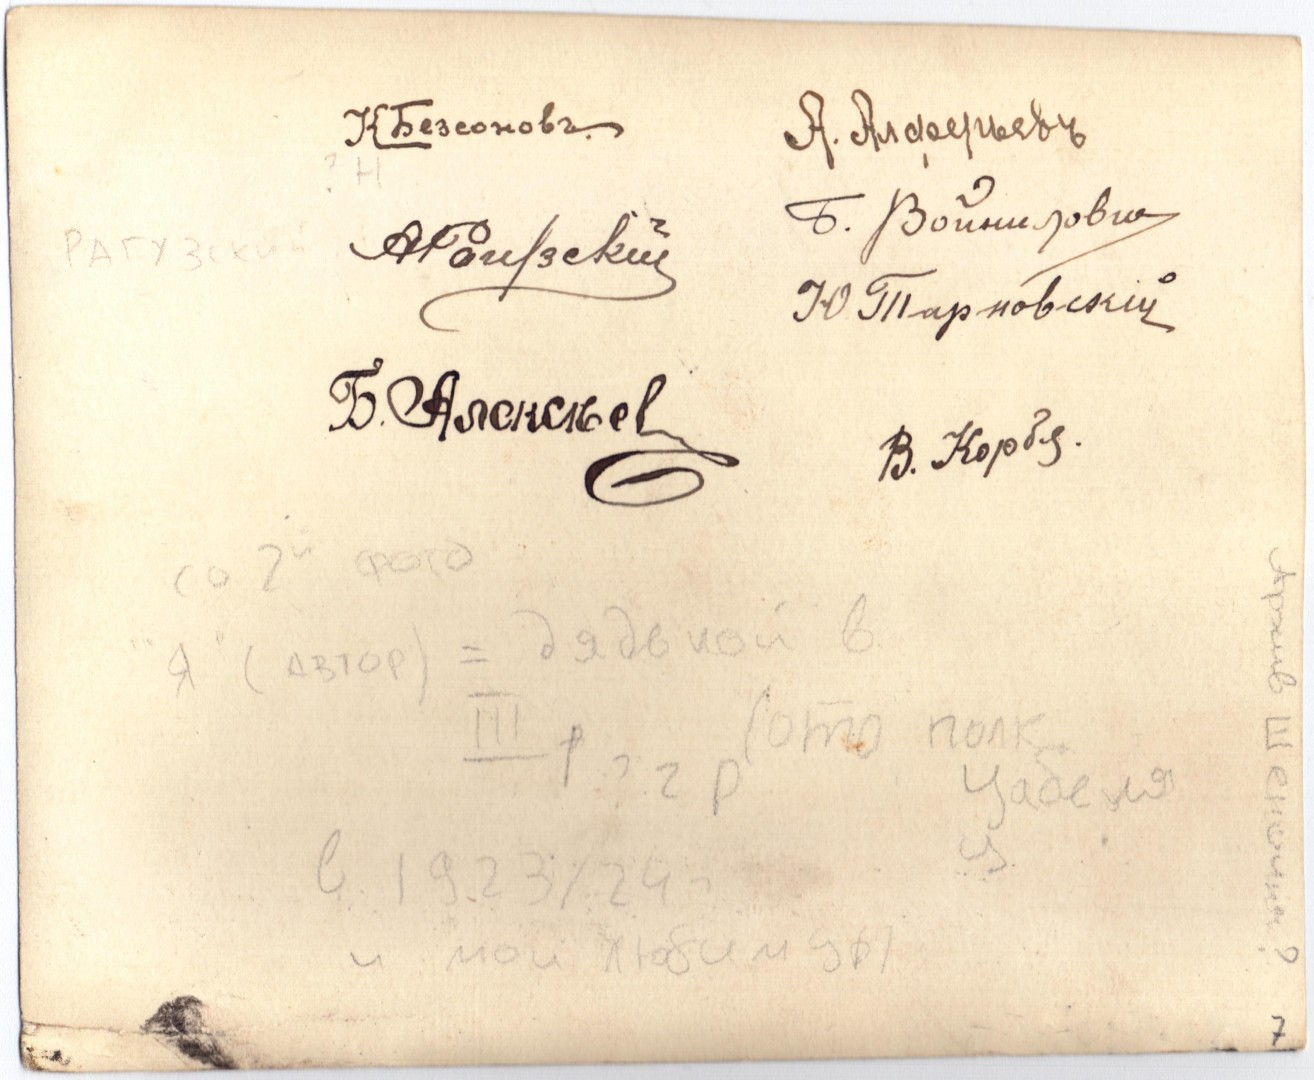 К Безсоновъ.
А. Алферьевъ
? Н
РАГУЗСКИЙ
А Рагузскій
Б. Войнилович
Ю Тарновскій
Б. Алексѣев
В. Корбя.
со 2й фото
"Я" (АВТОР) = дядькой в
III
(отд полк
2 р
Цабеля
в 1923/24 г
и мои любимцы
Архив Шеншина?
7